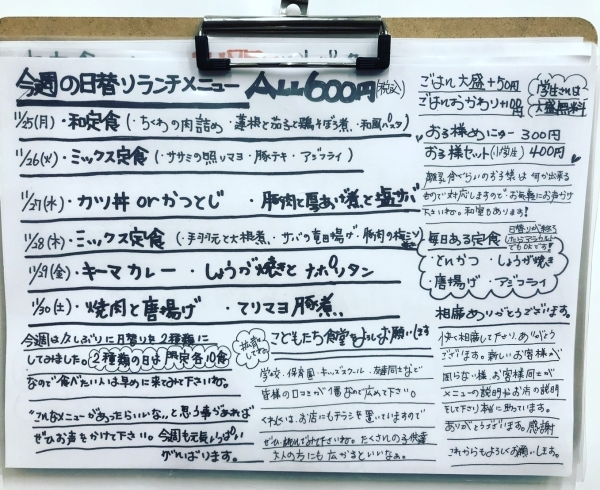 今週の日替りランチメニュー ALL600円(税込)
11/25(月)・和定食(・ちくわの肉詰め・蓮根と茄子と鶏そぼろ煮・和風パスタ)
11/26(火)・ミックス定食(・ササミの照りマヨ・豚テキ・アジフライ)
11/27(水)・カツ丼 orかつとじ ・豚肉と厚あげ煮と塩サバ
11/28(木)・ミックス定食(・手羽元と大根煮・サバの竜田揚げ・豚肉の梅
11/29(金)・キーマカレー ・しょうが焼きとナポリタン
11/30(土)・焼肉と唐揚げ ・テリマヨ豚煮
今週は久しぶりに日替りを2種類に
してみました。2種類の日は限定各10食
なので食べたい人は早めに来てみて下さいね。
"こんなメニューがあったらいいな〜"と思う事があれば
ぜひお声をかけて下さい。今週も元気いっぱい
がんばります。
拡散してね
こどもたち食堂をよろしくお願いします
学校・保育園・キッズスクール・友達同士などで
皆様の口コミが1番なので広めて下さい。
くわしくは、お店にもチラシを置いていますので
ぜひ
たくさんの子供達
大人の方にも広がるといいなぁ。
ごはん大盛+50円
ごはんおかわり+100円
学生さんは
大盛無料
お子様めにゅー 300円
お子様セット(小学生) 400円
離乳食ぐらいのお子様は何か出来る
もので対応しますので、お気軽にお声がけ
下さいね。和室もあります!
毎日ある定食
日替りが終
ってもOKです!
・とんかつ ・しょうが焼き
・唐揚げ ・アジフライ
相席ありがとうございます。
快く相席して下さり、ありがとう
ございます。新しいお客様が
困らない様お客様同士が
メニューの説明やお店の説明
をして下さり本当に助っています。
ありがとうございます。感謝
これからもよろしくお願いします。